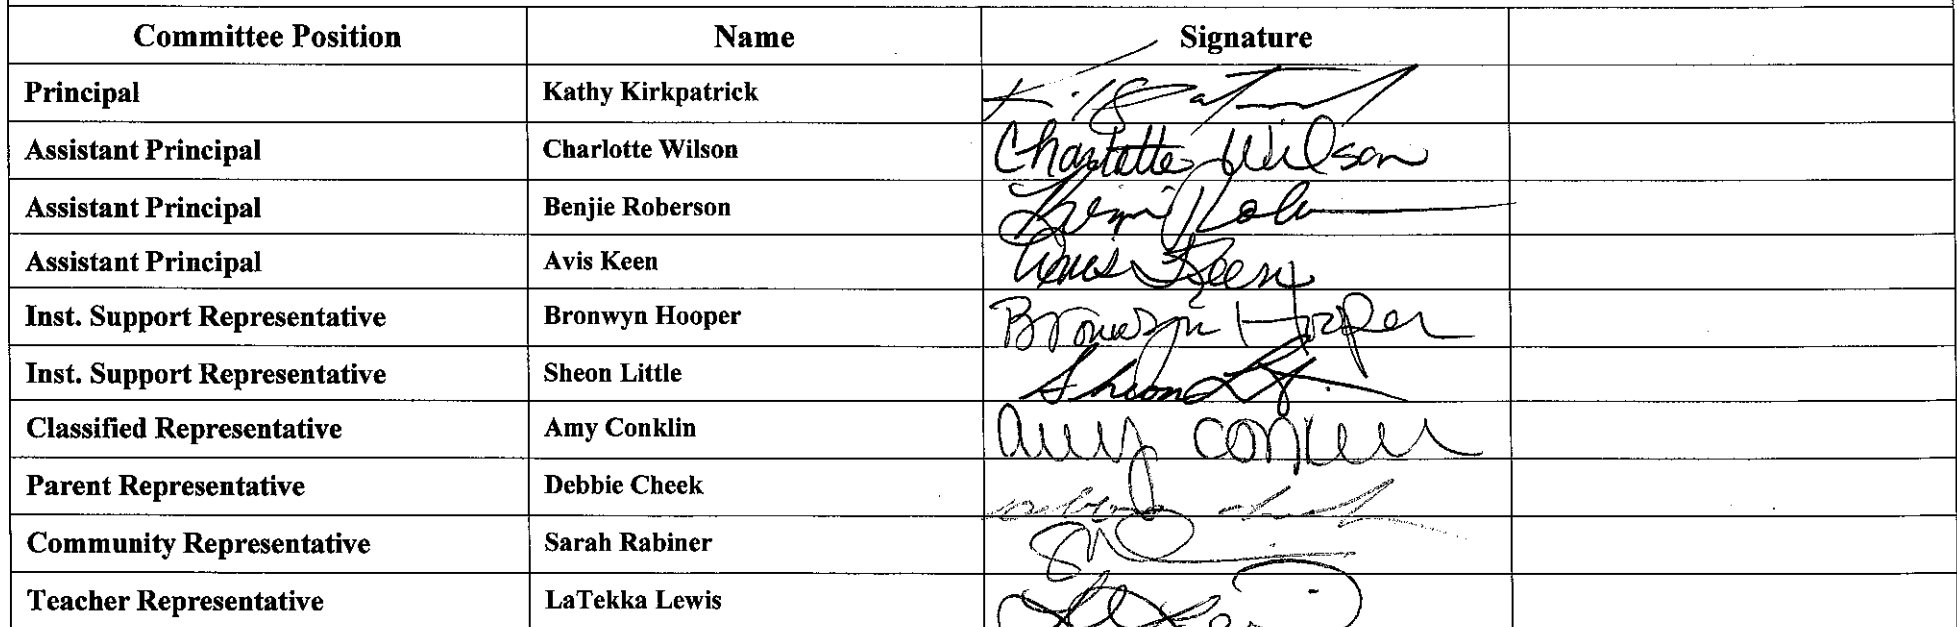 Committee Position Name Signature
Principal Kathy Kirkpatrick
Assistant Principal Charlotte Wilson Charlotte Wilson
Assistant Principal Benjie Roberson
Assistant Principal Avis Keen Avis Keen
Inst. Support Representative Bronwyn Hooper Bronwyn Hooper
Inst. Support Representative Sheon Little Sheon
Classified Representative Amy Conklin Amy Conklin
Parent Representative Debbie Cheek
Community Representative Sarah Rabiner
Teacher Representative LaTekka Lewis